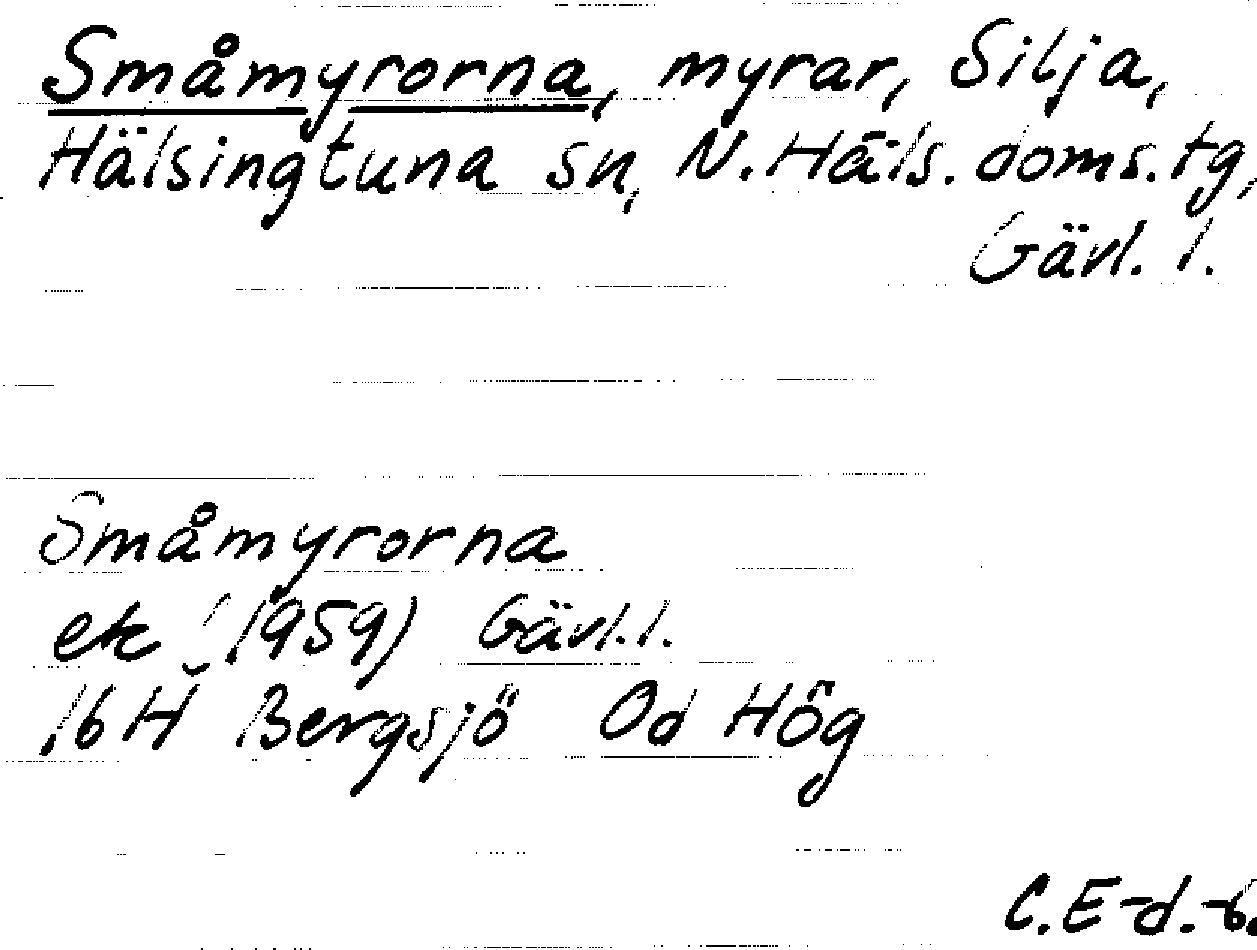 Småmyrorna, myrar, Silja,
Hälsingtuna sn, N. Häls. doms. tg,
Gävl. l.
Småmyrorna
ek (1959) Gävl. l.
16H Bergsjö Od Hög
C. E-d.